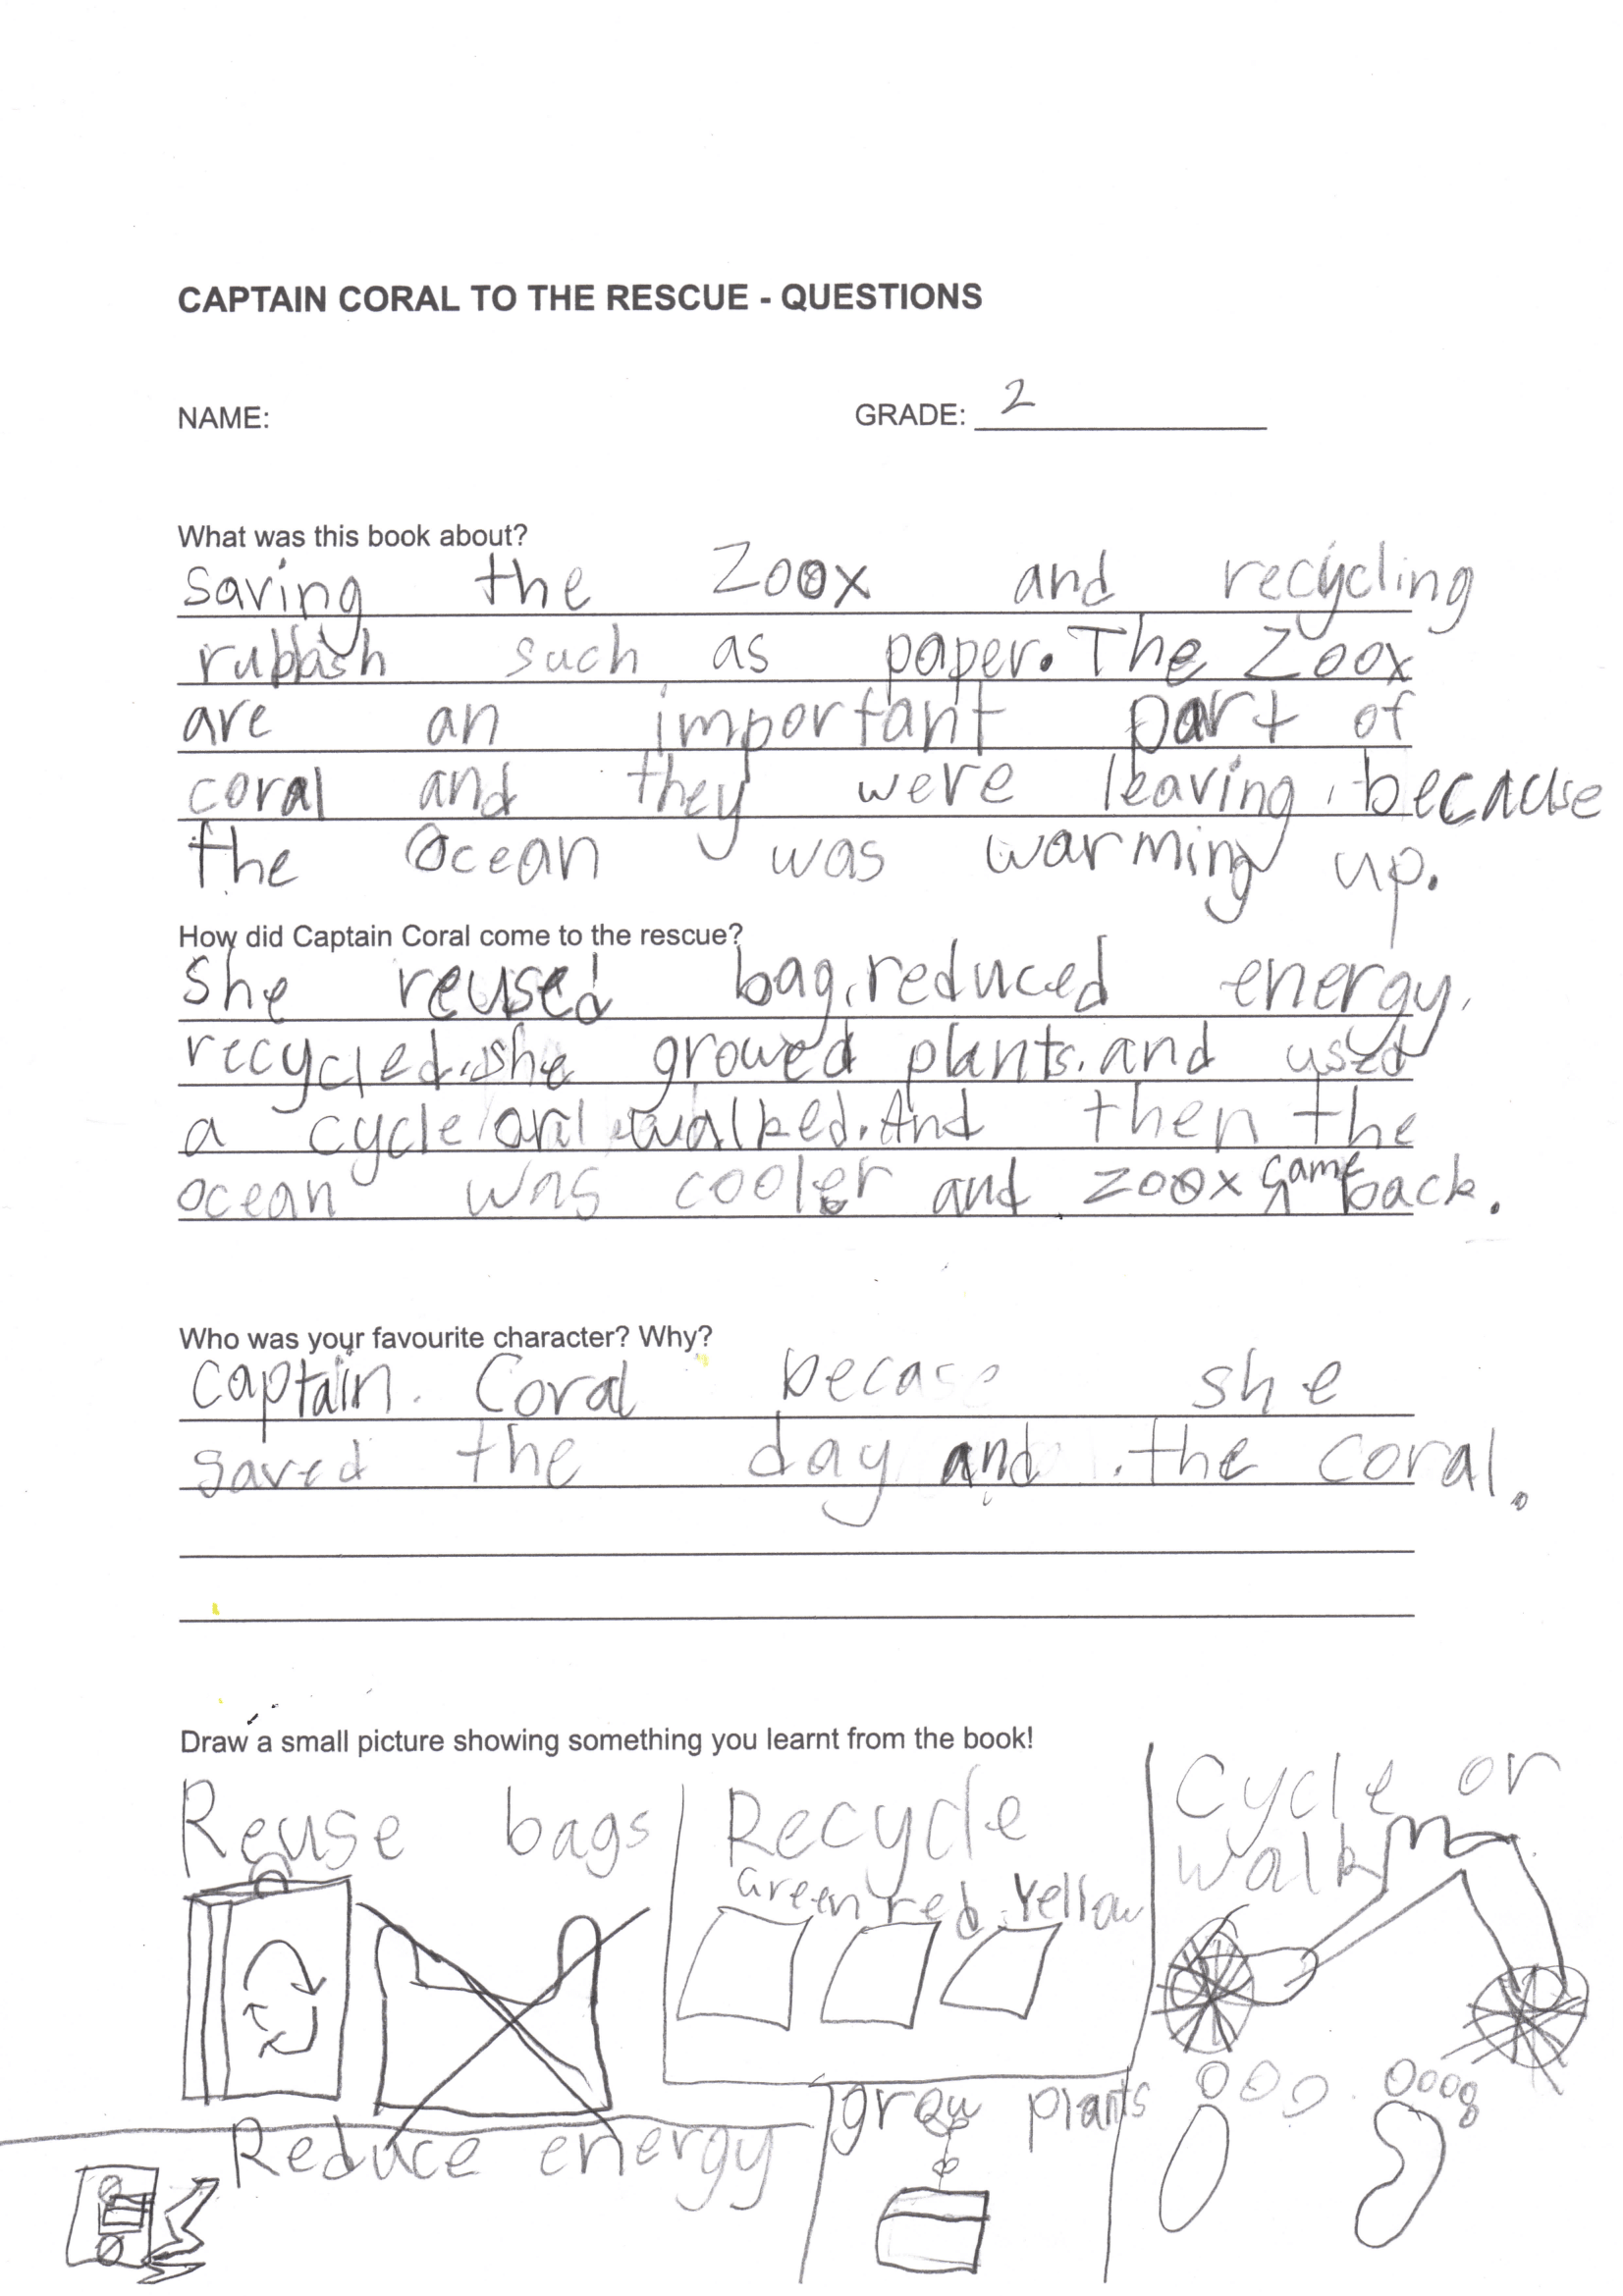 CAPTAIN CORAL TO THE RESCUE - QUESTIONS
NAME: GRADE: 2
What was this book about?
saving the Zoox and recycling
rubbish such as paper. The Zoox
are an important part of
coral and they were leaving, becacuse
the Ocean was warming up.
How did Captain Coral come to the rescue?
She reused bag, reduced energy,
recycled. she growed plants. and used
a cycle walked. And then the
ocean was cooler and zoox came back.
Who was your favourite character? Why?
Captain. Coral becase she
saved the day and the coral.
Draw a small picture showing something you learnt from the book!
Reuse bags Recycle Cycle or
walk
Green red Yellow
grow plants
Reduce energy